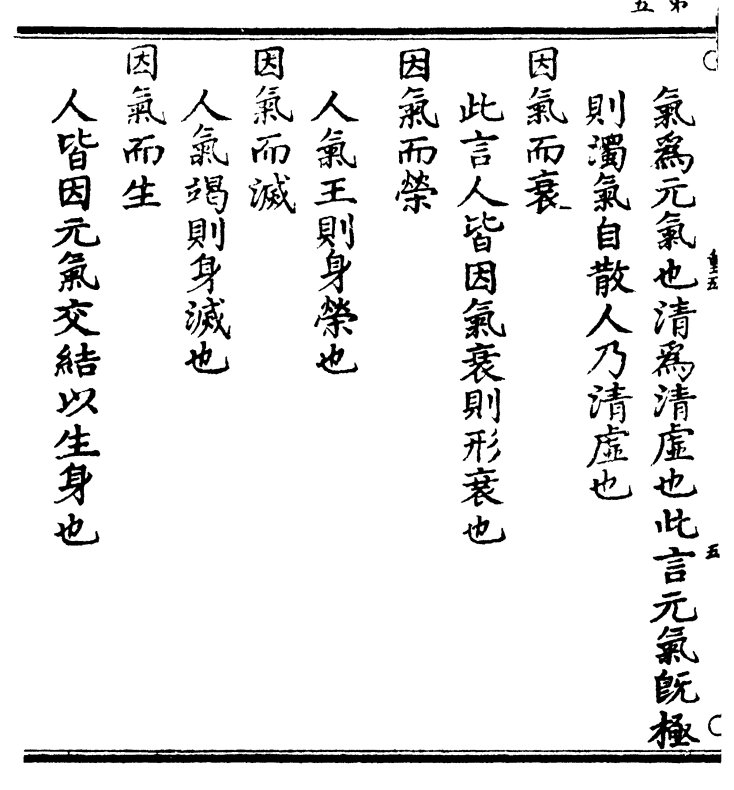 氣爲元氣也清爲清虛也此言元氣旣極
則濁氣自散人乃清虛也
因氣而衰
此言人皆因氣衰則形衰也
因氣而榮
人氣王則身榮也
因氣而滅
人氣竭則身滅也
因氣而生
人皆因元氣交結以生身也